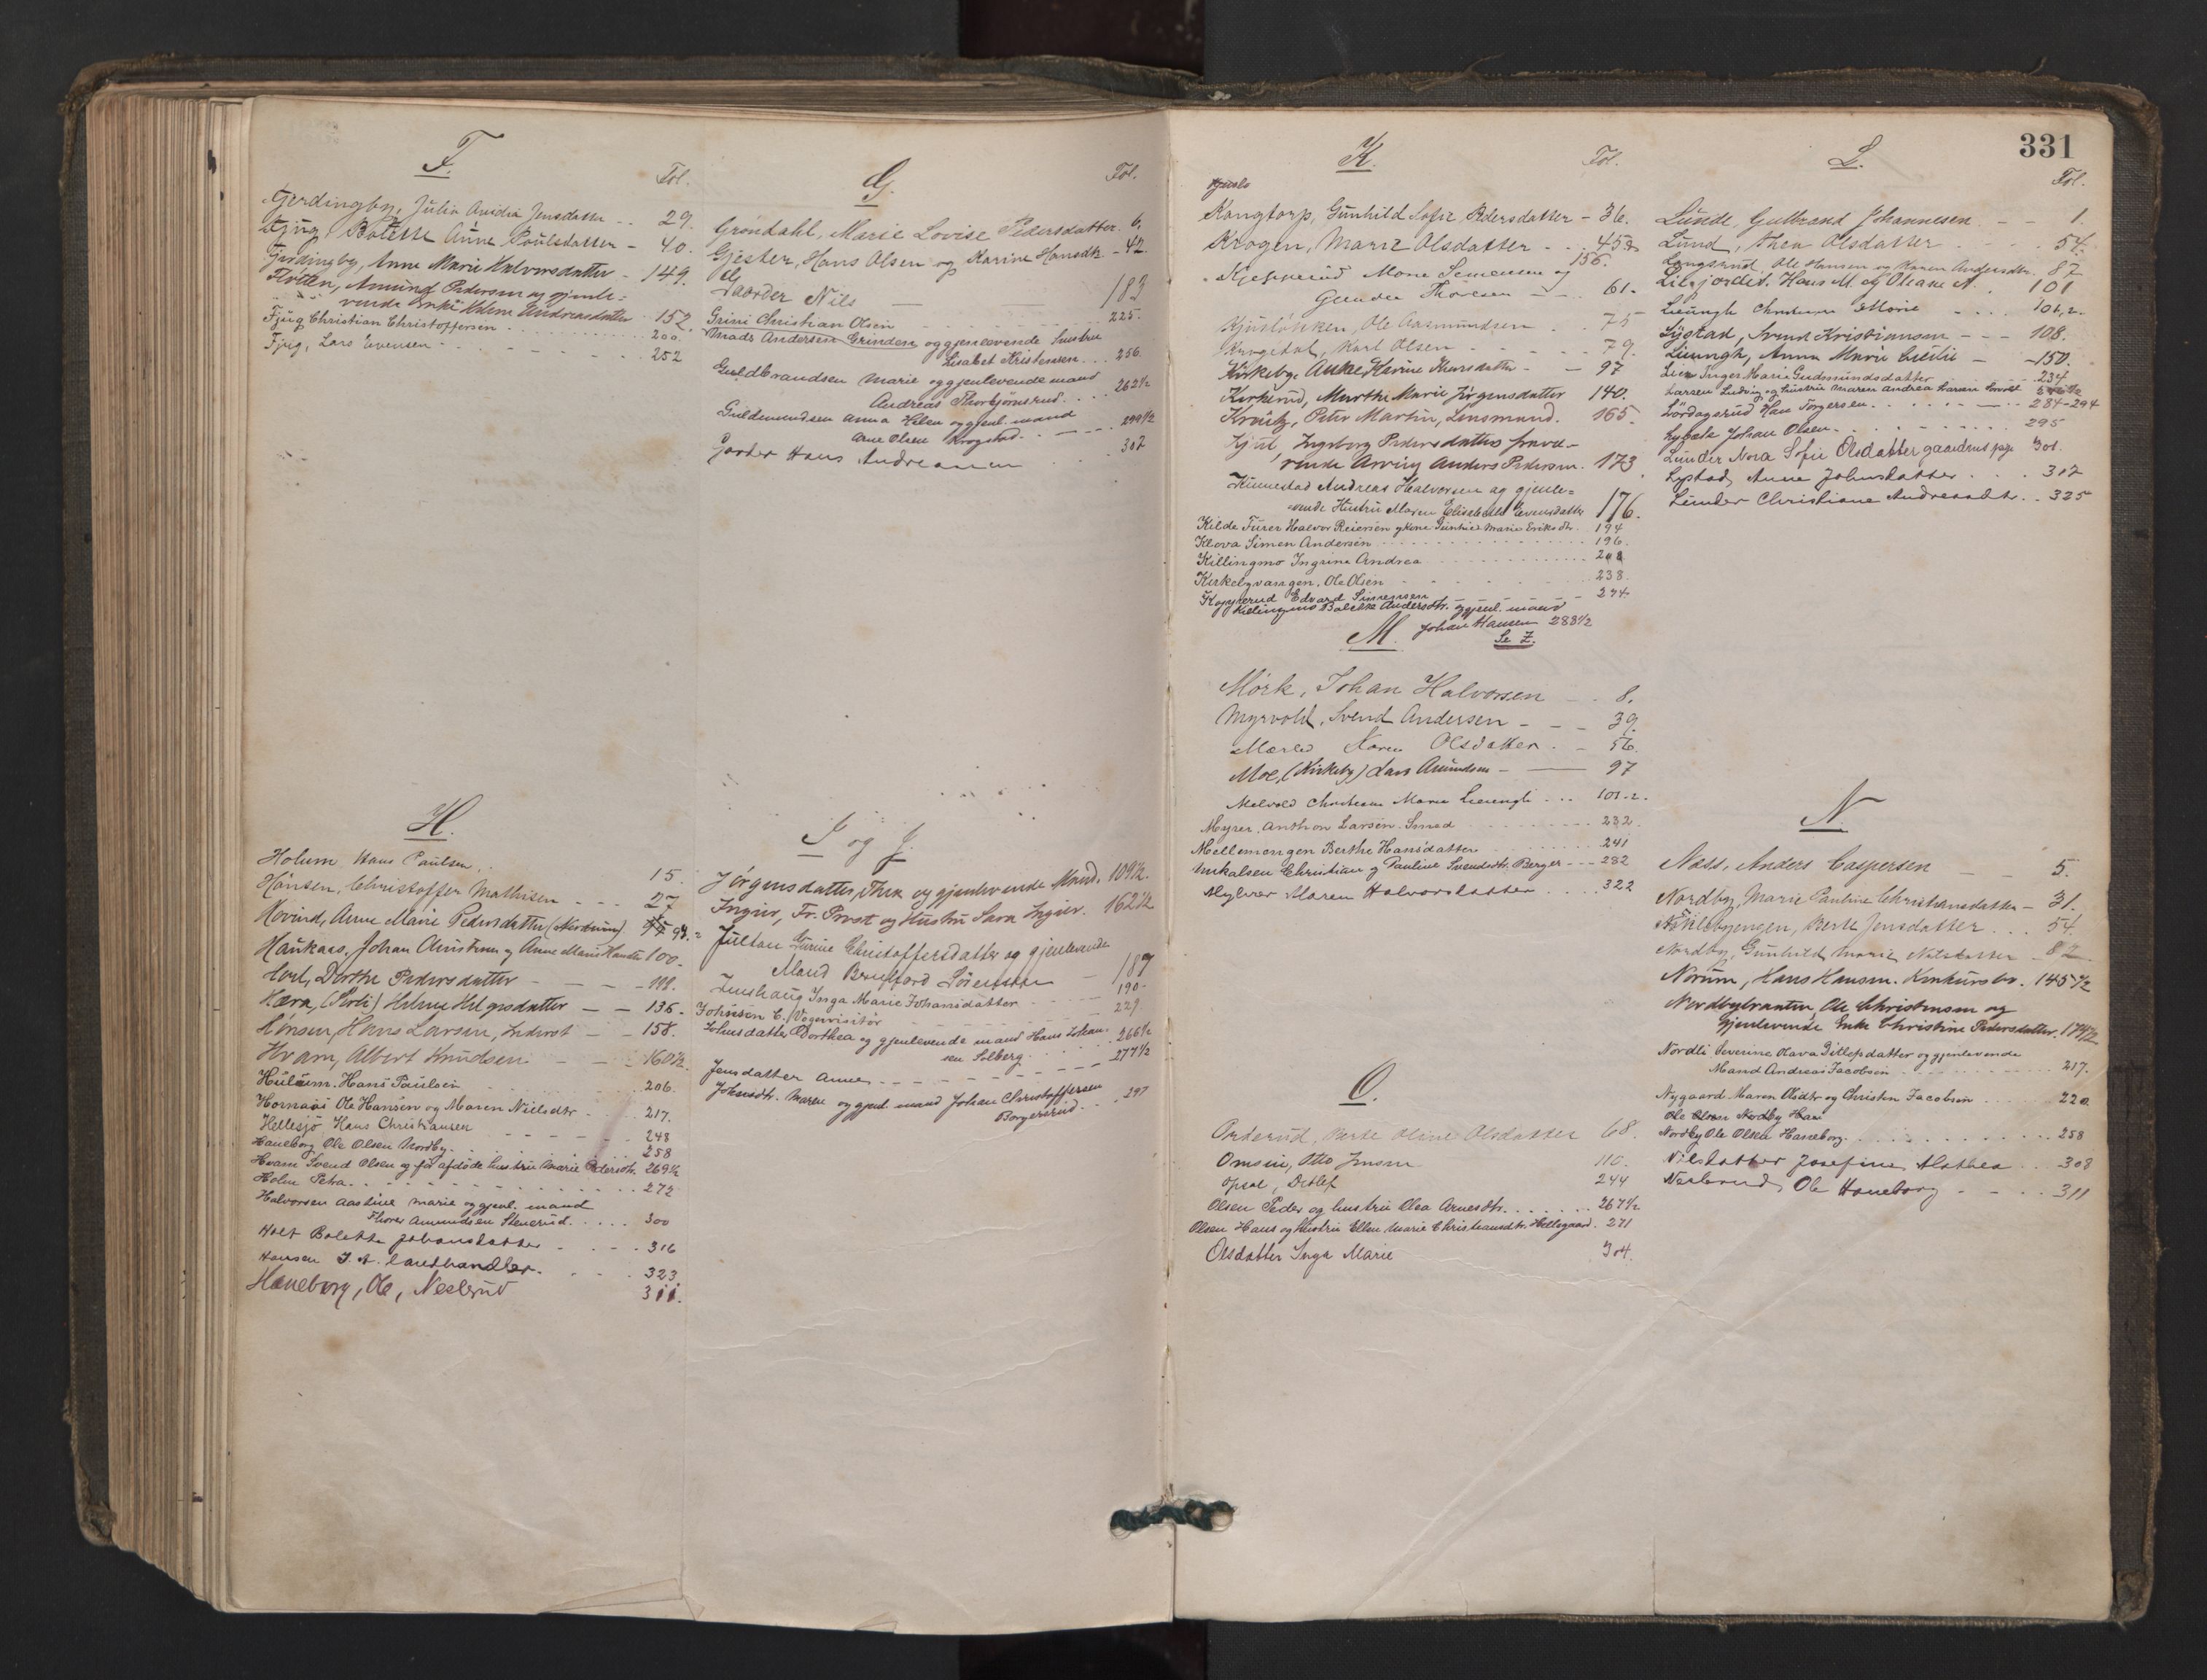 F.
Fol.
Gerdingby, Julia Avidia Jensdatter - - 29.
Fjug Bolette Anne Poulsdatter - 40.
Gerdingby, Anne Marie Halvorsdatter - 149.
Flöten, Amund Pedersen og gjenle-
vende Enke Helene Andreasdatter 152.
Fjug Christian Christoffersen 200.
Fjug, Lars Evensen 252
G.
Fol.
Gröndahl, Marie Lovise Pedersdatter. 6.
Gjester, Hans Olsen og Karine Hansdtr. - 42.
Gaarder Nils — 183
Grini Christian Olsen 225.
Mads Andersen Grinden og gjenlevende hustru
Lisabet Kristensen 256.
Guldbrandsen Marie og gjenlevende mand
Andreas Thorbjörnsrud 262½
Guldmundsen Anna Helen og gjenl. mand
Arne Olsen Krogstad 299½
Garder Hans Andreasen 307
H.
Holum Hans Paulsen 15.
Hansen, Christoffer Mathisen - - - 27
Hovind, Anne Marie Pedersdatter 94.
Haukaas, Johan Christensen og Anne Marie Hansdtr 100.
Dorthe Pedersdatter - - 111.
Hæra, Helene Helgesdatter - - 136.
Hansen, Hans Larsen, - 158.
Hvam, Albert Knudsen - - 160½.
Hulaum. Hans Paulsen 206.
Hornaas Ole Hansen og Maren Nielsdtr 217.
Hellesjö Hans Christiansen 248
Haneborg Ole Olsen Nordby 258
Hvam Svend Olsen og før afdöde hustru Marie Pedersdtr. 269½
Holm Petra 272
Halvorsen Aastine Marie og gjenl. mand
Thorer Amundsen Stenerud 300
Holt Bolette Johansdatter 316
Hansen J. A. landhandler 323.
Haneborg, Ole, Neslerud 311.
I og J.
Jörgensdatter, Thea og gjenlevende Mand. 109½.
Ingier, Fr. Provst og Hustru Sara Ingier. 162½
Jultan Karine Christoffersdatter og gjenlevende
Mand Bernford Sörensen - 187
Inga Marie Johansdatter 190.
Johnsen C. Vognvisitör 229.
Johnsdatter Dorthea og gjenlevende mand Hans Johan-
sen Solberg 266½
Jensdatter Anne 277½
Johnsdtr. Maren og gjenl. mand Johan Christoffersen
Borgersrud 297
331
K.
Fol.
Kjuslö
Kangtorp, Gunhild Sofie Pedersdatter - 36.
Krogen, Marie Olsdatter 45
156.
Kjepperud Mone Simensen og
Gunder Thoresen 61.
Kjuslökken, Ole Aasmundsen 75
Krogedal, Karl Olsen 79.
Kirkeby, Anne Karine Hansdatter - 97
Kirkerud, Marthe Marie Jörgensdatter 140.
Krautz, Peter Martin, Lensmand. 165.
Kjul, Ingeborg Pedersdatters fravæ-
rende Arving Anders Pedersen. 173
Kinnestad Andreas Halvorsen og gjenle-
vende Hustru Maren Elisabeth Evensdatter 176.
Kilde Furer Halvor Reiersen og Kone Gunhild Marie Eriksdtr. 194
Klova Simen Andersen 196.
Killingmo Ingrina Andrea 208
Kirkebyvangen. Ole Olsen 238.
Kopperud Edvard Simensen 274
Killingmo Bolette Andersdtr. og gjenl. mand
Johan Hansen 288½
L.
Fol.
Lunde, Gulbrand Johannesen - - 1.
Lund, Thea Olsdatter 54.
Langsrud, Ole Hansen og Karen Andersdtr. 87
Liljordet. Hans M. og Oleane A. 101
Lieungh Christiane Marie 101,2.
Lystad, Svend Kristiansen - - - 108.
Lieungh, Anna Marie Cecilie - -150.
Lien Inger Marie Gudmundsdatter 234
Larsen Ludvig og hustru Maren Andrea Larsen
Lördagsrud Hans Torgersen 284-294
Lybæk Johan Olsen 295
Lunder Nora Sofie Olsdatter gaardens pige 301.
Lystad, Anne Johnsdatter 312
Lunder Christiane Andreasdtr. 325
M.
Se Z.
Mörk, Johan Halvorsen 8.
Myrvold, Svend Andersen - - - 39.
Karen Olsdatter - 56.
Moe, (Kirkeby) Lars Amundsen - — 97
Melvold Christiane Marie Lieungh 101-2.
Myrer. Anthon Larsen. Smed 232.
Mellemengen Berthe Hansdatter 241
Mikalsen Christian og Pauline Svendsdtr. Berger - - - 282
Maren Halvorsdatter 322
N.
Næss, Anders Caspersen 5.
Nordby, Marie Pauline Christiansdatter - 31.
Berte Jensdatter 54.
Nordby, Gunhild Marie Nilsdatter 82
Norum, Hans Hansen. Konkursbo. 145½
Nordbybraaten, Ole Christensen og
Gjenlevende Enke Christine Pedersdatter. 174½
Nordli Severine Olava Ditlefsdatter og gjenlevende
Mand Andreas Jacobsen 217.
Nygaard Maren Olsdtr og Christen Jacobsen 220
Ole Olsen Nordby Han
Nordby Ole Olsen Haneborg 258
Nilsdatter Josefine Alethea 308
Neslerud, Ole Haneborg 311
O.
Orderud, Berte Oline Olsdatter 68.
Omsen, Otto Jensen 110.
Opsal, Detlef 244
Olsen Peder og hustru Olea Arnesdtr. 267½
Olsen Hans og hustru Ellen Marie Christiansdtr. Hellsgaard. 271
Olsdatter Inga Marie 304.